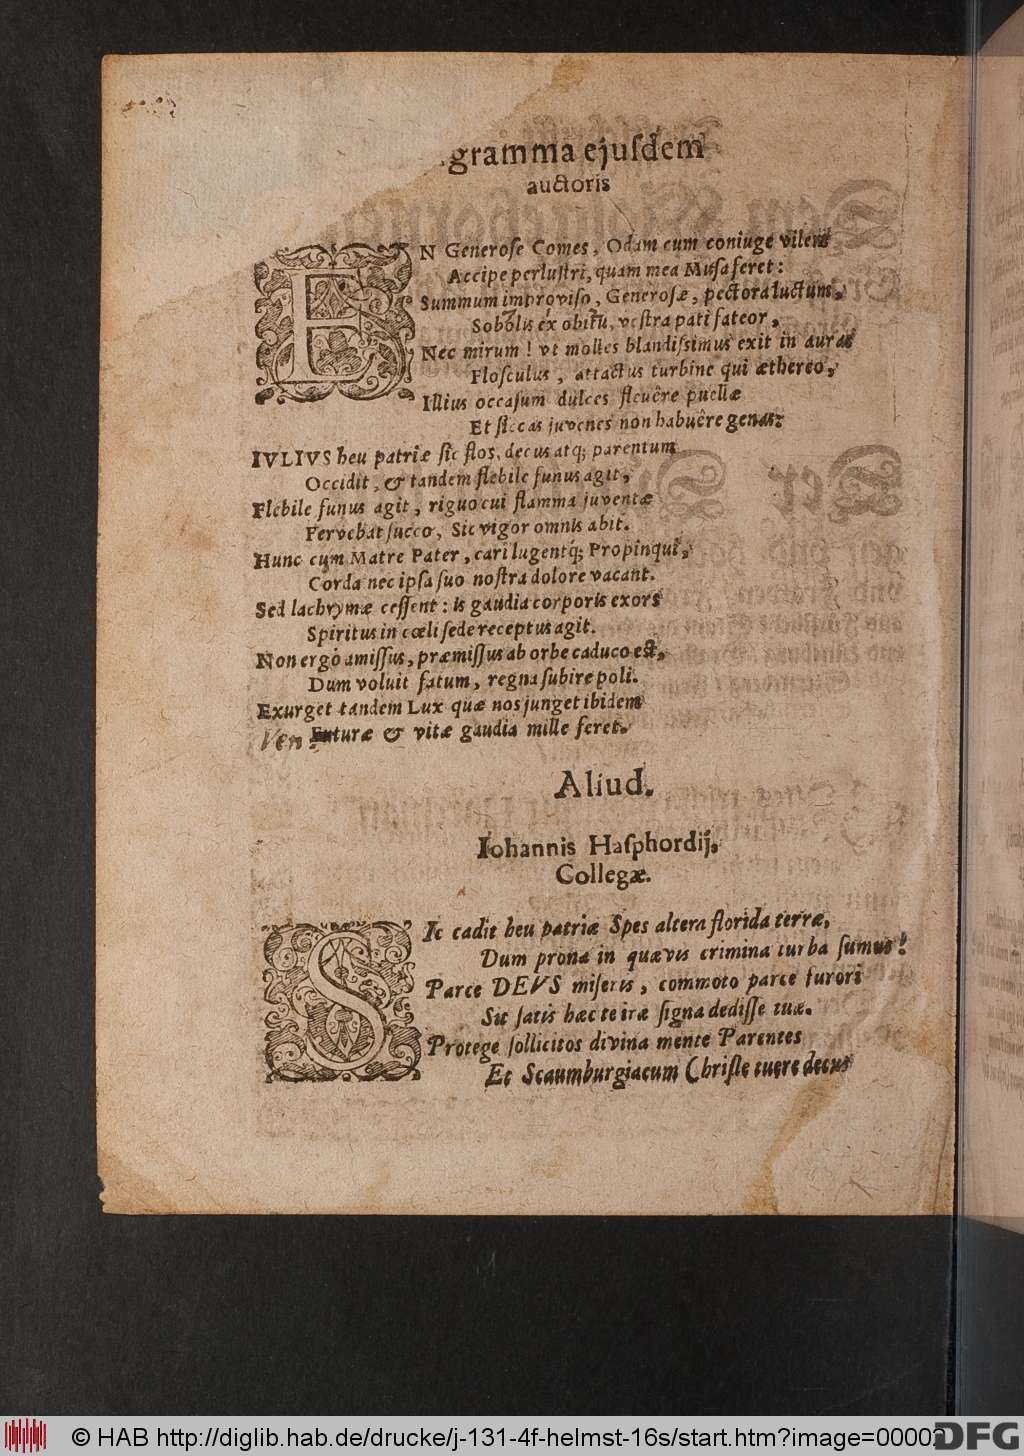 gramma ejuſdem
auctoris
EN Generoſe Comes, Odam cum coniuge vilem
Accipe perluſtri, quam mea Muſa feret:
Summum improviſo, Generoſæ, pectora luctum,
Sobolis ex obitu, veſtra pati fateor,
Nec mirum! vt molles blandiſsimus exit in auras
Floſculus, attactus turbine qui æthereo,
Illius occaſum dulces flevêre puellæ
Et ſiccas juvenes non habuêre genas:
IVLIVS heu patriæ ſic flos, decus atq; parentum
Occidit, & tandem flebile funus agit,
Flebile funus agit, riguo cui flamma juventæ
Fervebat ſucco, Sic vigor omnis abit.
Hunc cum Matre Pater, cari lugentq́; Propinqui,
Corda nec ipſa ſuo noſtra dolore vacant.
Sed lachrymæ ceſſent: is gaudia corporis exors
Spiritus in cœli ſede receptus agit.
Non ergò amiſſus, præmiſſus ab orbe caduco eſt,
Dum voluit fatum, regna ſubire poli.
Exurget tandem Lux quæ nos junget ibidem
Ven Futuræ & vitæ gaudia mille feret.
Aliud.
Iohannis Haſphordij,
Collegæ.
SIc cadit heu patriæ Spes altera florida terræ,
Dum prona in quævis crimina turba ſumus!
Parce DEVS miſeris, commoto parce furori
Sit ſatis hæc te iræ ſigna dediſſe tuæ.
Protege ſollicitos divina mente Parentes
Et Scaumburgiacum Chriſte tuere decus
© HAB http://diglib.hab.de/drucke/j-131-4f-helmst-16s/start.htm?image=00002
DFG